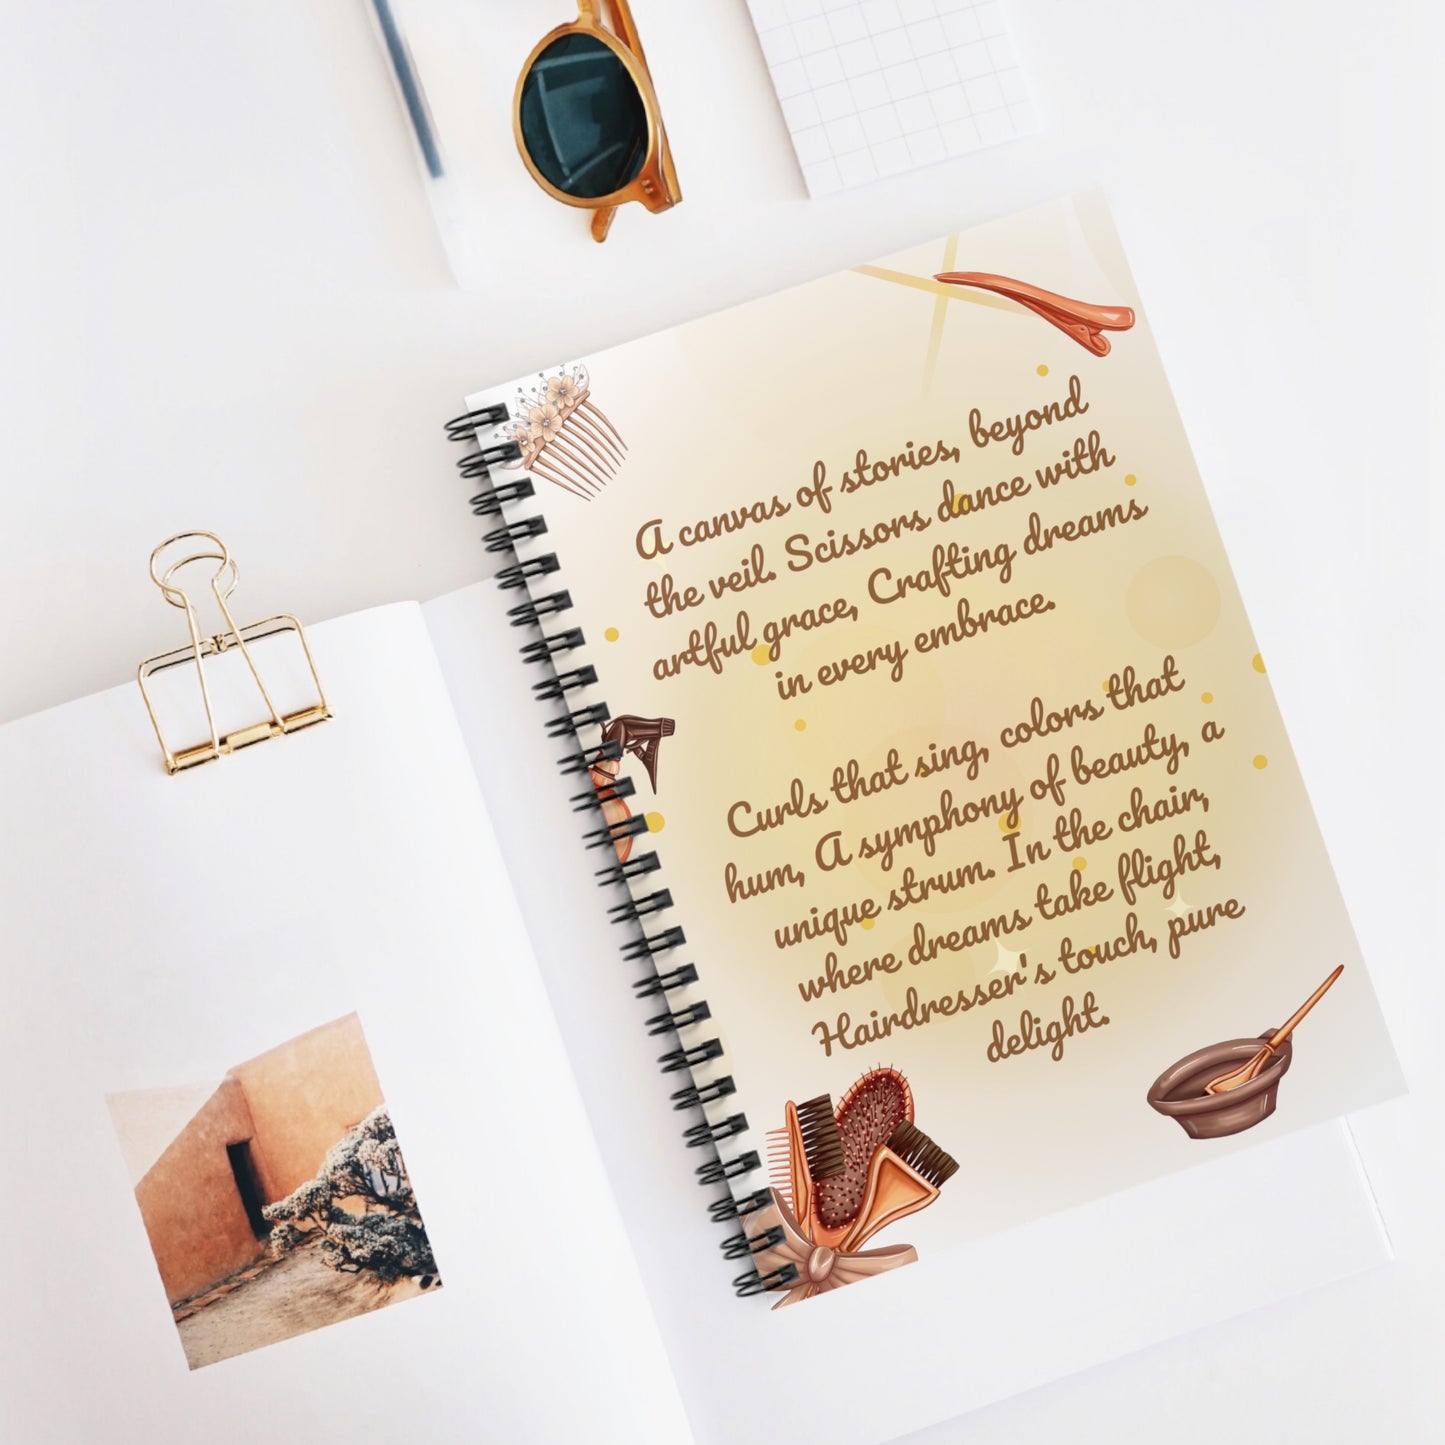 A canvas of stories, beyond
the veil. Scissors dance with
artful grace, Crafting dreams
in every embrace.
Curls that sing, colors that
hum, A symphony of beauty, a
unique strum. In the chair,
where dreams take flight,
Hairdresser's touch, pure
delight.